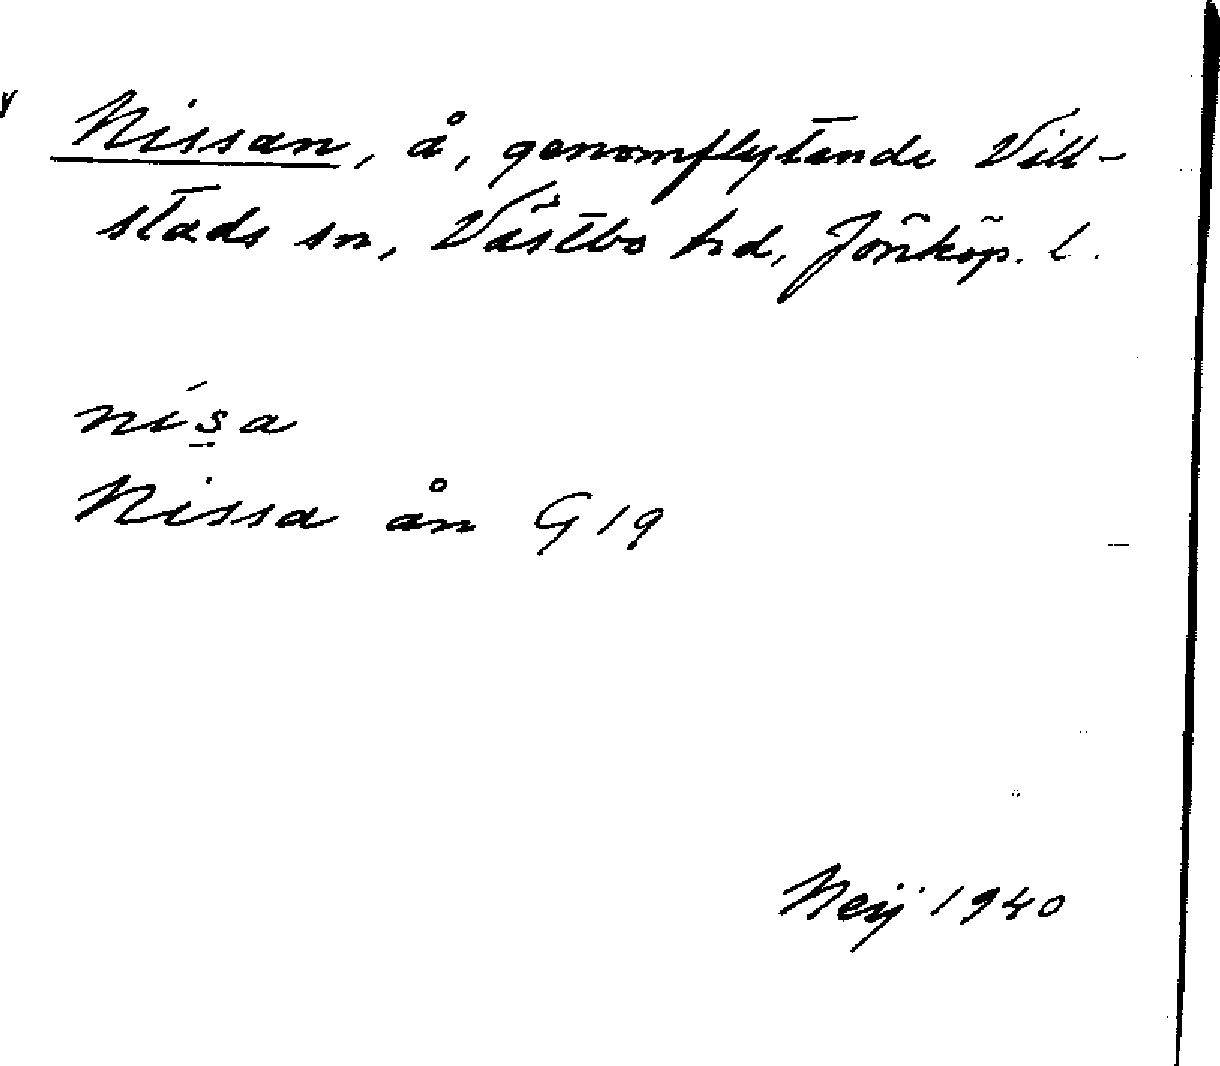 Nissan, å, genomflytande Vill-
stads sn, Västbo hd, Jönköp. l.
nísa
Nissa ån G 19
Neij 1940